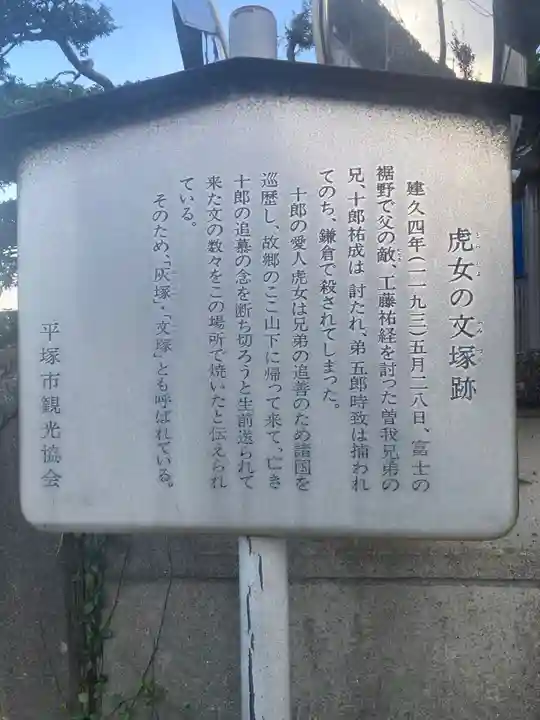 虎女の文塚跡
建久四年(一一九三)五月二八日、富士の
裾野で父の敵、工藤祐経を討った曽我兄弟の
兄、十郎祐成は 討たれ、弟 五郎時致は捕われ
てのち、鎌倉で殺されてしまった。
十郎の愛人虎女は兄弟の追善のため諸国を
巡歴し、故郷のここ山下に帰って来て、亡き
十郎の追慕の念を断ち切ろうと生前送られて
来た文の数々をこの場所で焼いたと伝えられ
ている。
そのため、「灰塚」・「文塚」とも呼ばれている。
平塚市観光協会